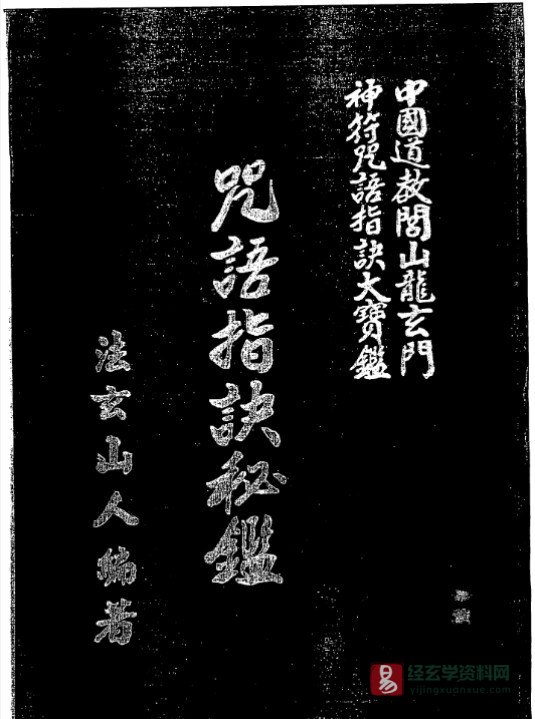 中國道教閭山龍玄門
神符咒語指訣大寶鑑
咒語指訣秘鑑
法玄山人編著
易 经玄学资料网
yijingxuanxue.com